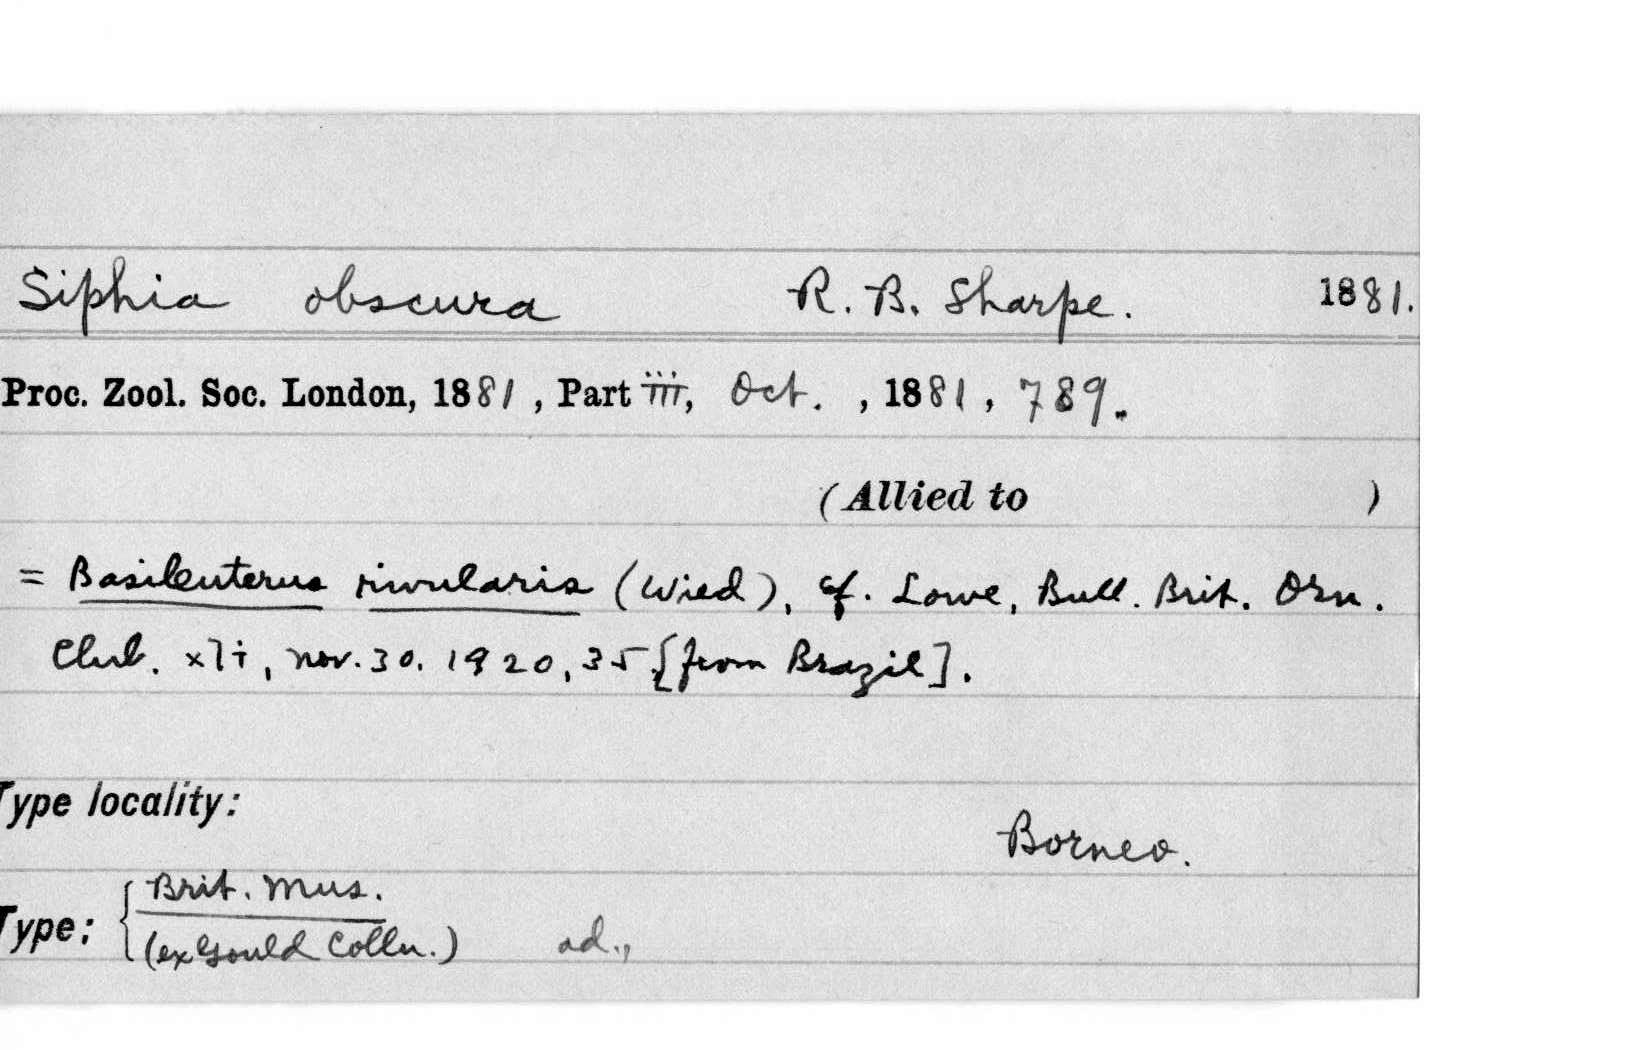 Siphia obscura R. B. Sharpe. 1881.
Proc. Zool. Soc. London, 1881, Part iii, Oct. , 1881, 789.
(Allied to )
= Basileuterus rivularis (Wied), cf. Lowe, Bull. Brit. Orn.
Club. xli, nov. 30. 1920, 35 [from Brazil].
Type locality:
Borneo.
Brit. Mus.
Type: {
(ex Gould Colln.) ad.,